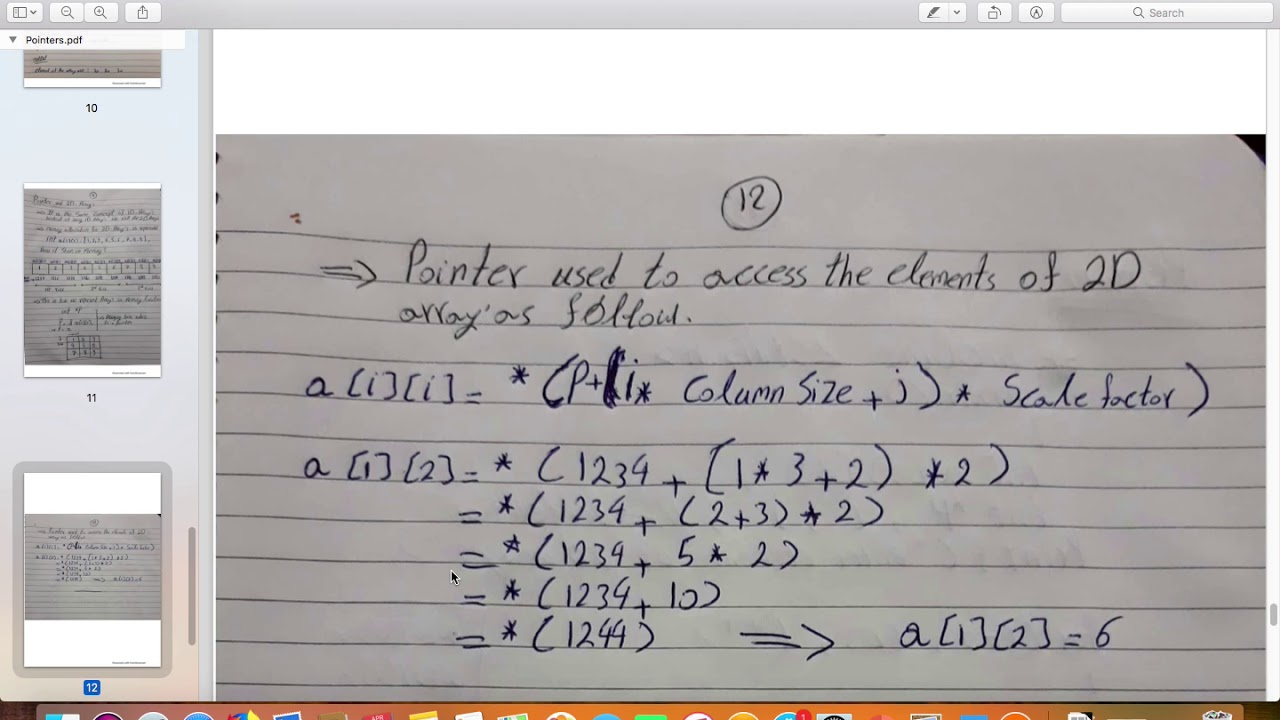 Search
Pointers.pdf
10
11
12
12
⇒ Pointer used to access the elements of 2D
array as follow.
a[i][i] = *(P+(i* Column Size + j) * Scale factor)
a[1][2] = *(1234 + (1*3+2) *2)
= *(1234 + (2+3)*2)
= *(1234 + 5*2)
= *(1234 + 10)
= *(1244) ⇒ a[1][2] = 6